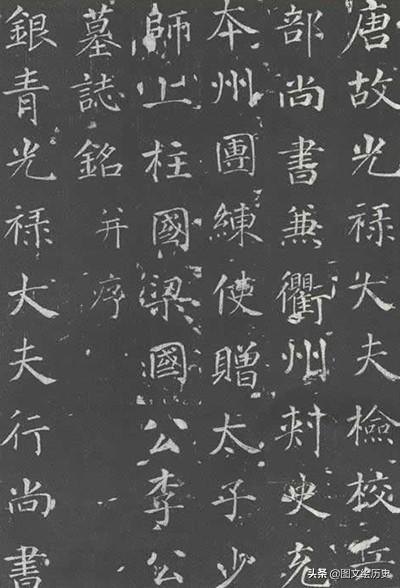 唐故光禄大夫檢校兵
部尚書兼衢州刺史充
本州團練使贈太子少
師上柱國梁國公李公
墓誌銘并序
銀青光禄大夫行尚書
头条 @图文绘历史